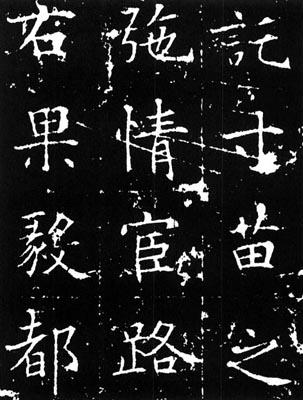 託寸苗之
弛情宦路
右果毅都